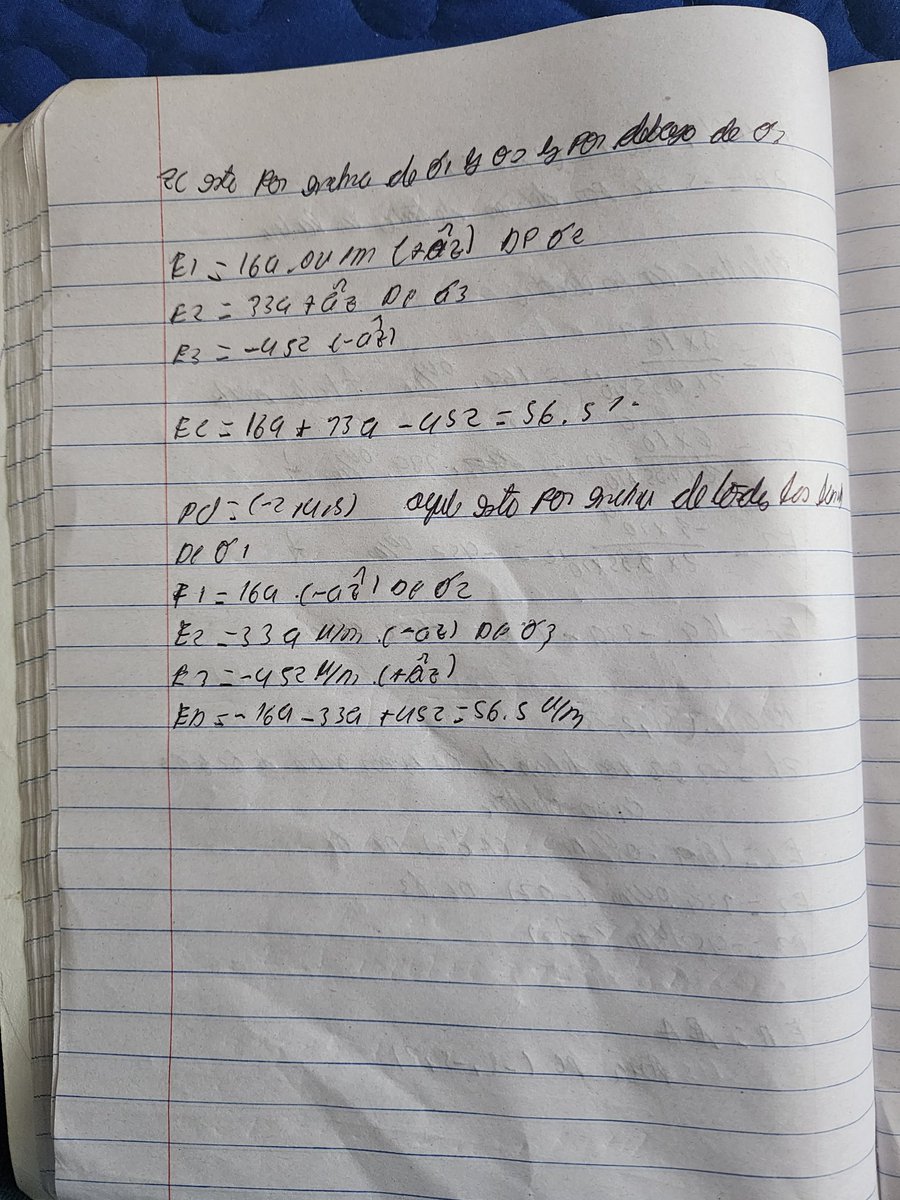 zc esta por encima de σ1 y σ2 y por debajo de σ3
E1 = 169.0 V/m (+âz) De σ2
E2 = 339 +âz De σ3
E3 = -452 (-âz)
Ec = 169 + 339 - 452 = 56.5
Pd = (-2,4,5) aqui esta por encima de todas las
De σ1
E1 = 169 (-âz) De σ2
E2 = 339 V/m (-az) De σ3
E3 = -452 V/m (+âz)
ED = -169 - 339 + 452 = 56.5 V/m